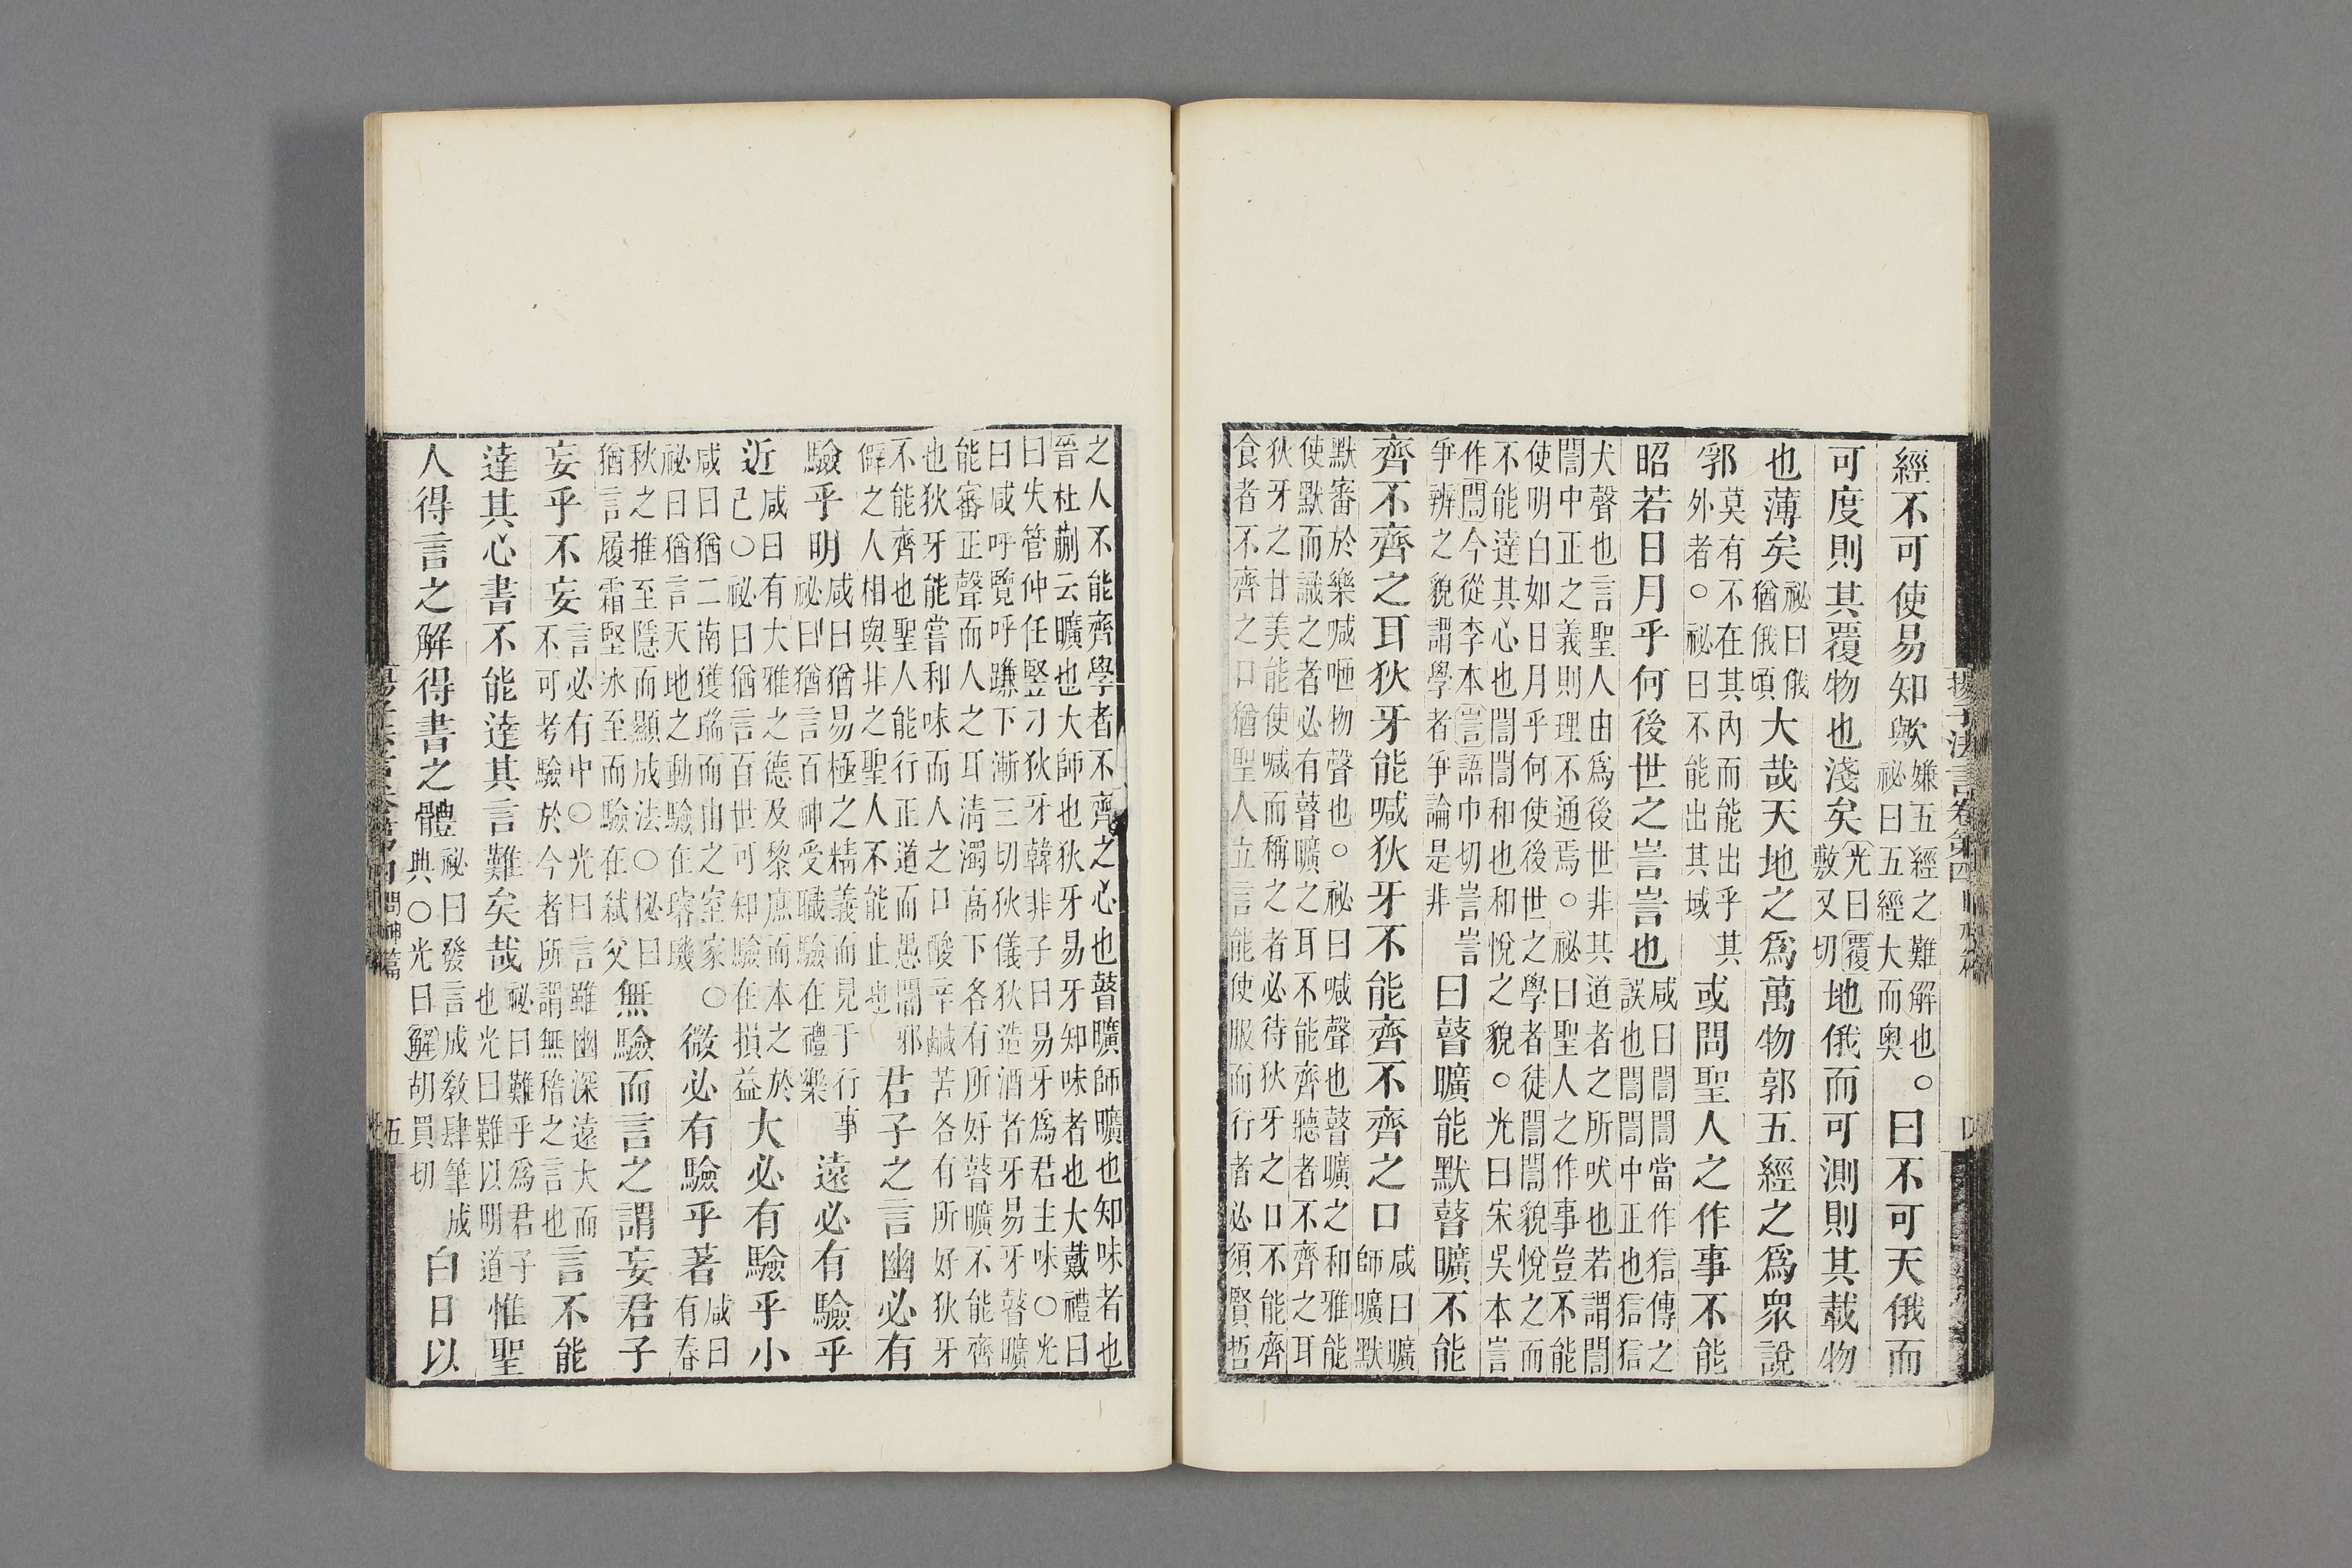 揚子法言卷第四
經不可使易知歟嫌五經之難解也。祕曰五經大而奧曰不可天俄而
可度則其覆物也淺矣光曰覆敷又切地俄而可測則其載物
也薄矣祕曰俄猶俄頃大哉天地之爲萬物郭五經之爲衆說
郛莫有不在其內而能出乎其外者。祕曰不能出其域或問聖人之作事不能
昭若日月乎何後世之訔訔也咸曰誾誾當作信傳之誤也誾誾中正也信信
犬聲也言聖人由爲後世非其道者之所吠也若謂誾
誾中正之義則理不通焉。祕曰聖人之作事豈不能
使明白如日月乎何使後世之學者徒誾誾貌悅之而
不能達其心也誾誾和也和悅之貌。光曰宋吳本訔
作誾今從李本訔語巾切訔訔爭辨之貌謂學者爭論是非曰瞽曠能默瞽曠不能
齊不齊之耳狄牙能喊狄牙不能齊不齊之口咸曰曠師曠默
默審於樂喊咂物聲也。祕曰喊聲也瞽曠之和雅能
使默而識之者必有瞽曠之耳不能齊聽者不齊之耳
狄牙之甘美能使喊而稱之者必待狄牙之口不能齊
食者不齊之口猶聖人立言能使服而行者必須賢哲
之人不能齊學者不齊之心也瞽曠師曠也知味者也
晉杜蒯云曠也大師也狄牙易牙知味者也大戴禮曰
曰失管仲任豎刁狄牙韓非子曰易牙爲君主味○光
曰咸呼覽呼下漸三切狄儀狄造酒者牙易牙瞽曠
能審正聲而人之耳淸濁高下各有所好瞽曠不能齊
也狄牙能嘗和味而人之口酸辛鹹苦各有所好狄牙
不能齊也聖人能行正道而愚闇邪僻之人相與非之聖人不能止也君子之言幽必有
驗乎明咸曰猶易極之精義而見于行事祕曰猶言百神受職驗在禮樂遠必有驗乎
近咸曰有大雅之德及黎庶而本之於已○祕曰猶言百世可知驗在損益大必有驗乎小
咸曰猶二南獲瑞而由之室家○祕曰猶言天地之動驗在璿璣微必有驗乎著咸曰有春
秋之推至隱而顯成法○祕曰猶言履霜堅冰至而驗在弒父無驗而言之謂妄君子
妄乎不妄言必有中○光曰言雖幽深遠大而不可考驗於今者所謂無稽之言也言不能
達其心書不能達其言難矣哉祕曰難乎爲君子也光曰難以明道惟聖
人得言之解得書之體祕曰發言成敎肆筆成典○光曰解胡買切白日以
問神篇 五